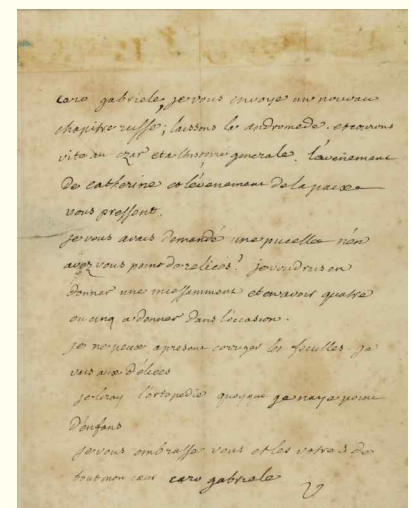 caro gabriele, je vous envoye un nouveau
chapitre russe; laissons la andromede. et courons
vite au czar et a lhistoire generale. l'avenement
de catherine et lévénement de la paix
vous pressent.
je vous avais demandé une pucelle n'en
avez vous point de reliées? je voudrais en
donner une incessamment et en avoir quatre
ou cinq a donner dans l'occasion.
je ne peux apresent corriger les feuilles. je
vais aux délices
je liray l'ortopedie quoyque je naye point
d'enfans
je vous embrasse vous et les votres de
tout mon cœur caro gabriele
V